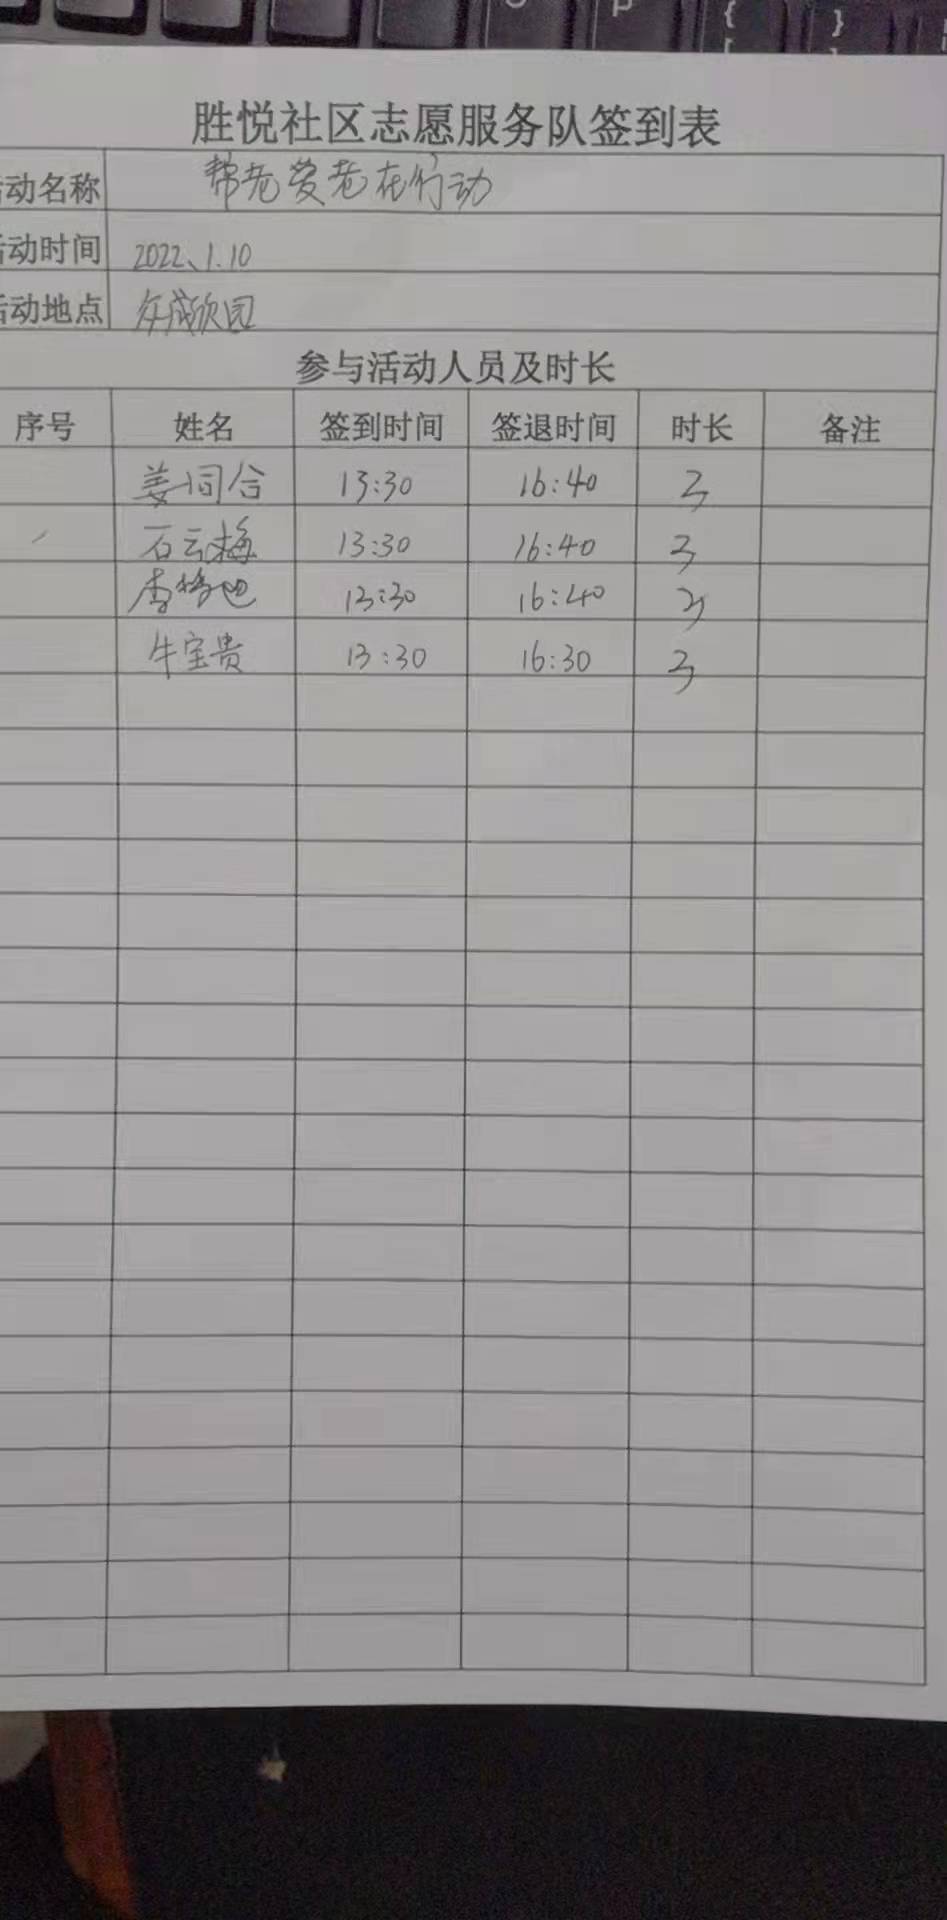 胜悦社区志愿服务队签到表
动名称 帮老爱老在行动
活动时间 2022、1.10
活动地点 众成欣园
参与活动人员及时长
序号 姓名 签到时间 签退时间 时长 备注
姜同合 13:30 16:40 3
石云梅 13:30 16:40 3
李 13:30 16:40 3
牛宝贵 13:30 16:30 3